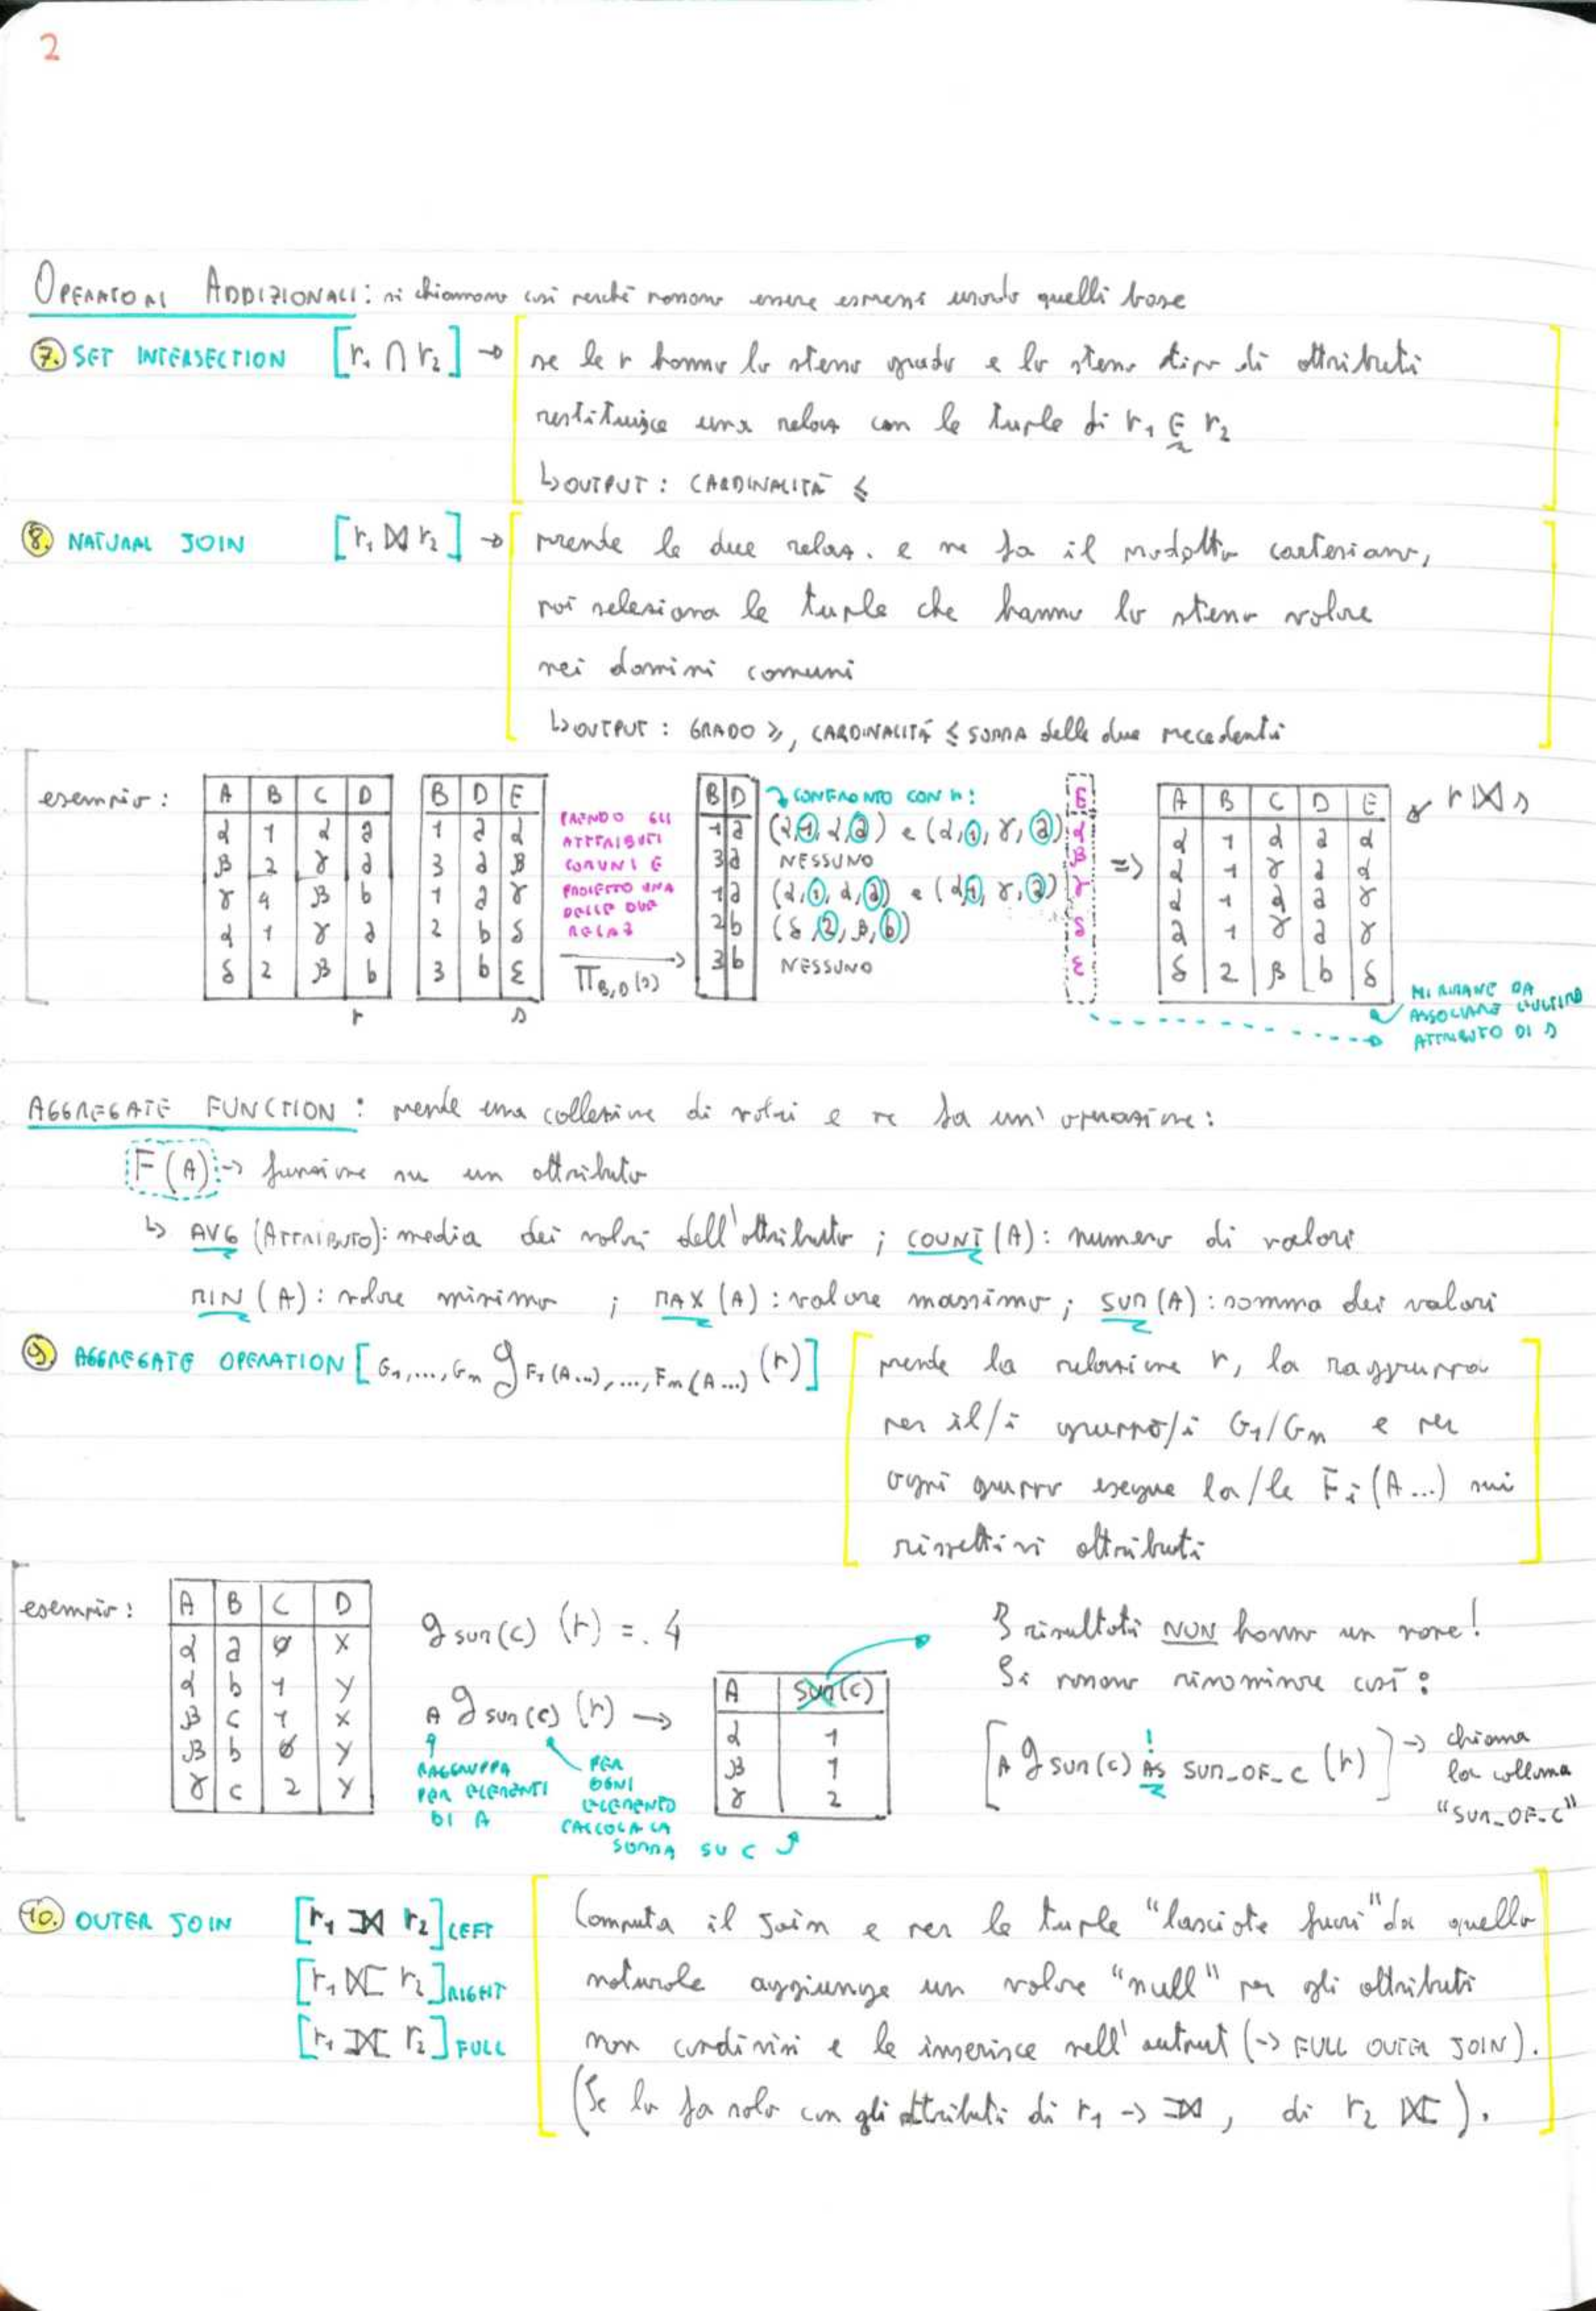 2
OPERATORI ADDIZIONALI: si chiamano così perché possono essere espressi usando quelli base
7. SET INTERSECTION [r₁ ∩ r₂] → se le r hanno lo stesso grado e lo stesso tipo di attributi
restituisce una relaz con le tuple di r₁ E r₂
↳ OUTPUT: CARDINALITÀ ≤
8. NATURAL JOIN [r₁ ⋈ r₂] → prende le due relaz. e ne fa il prodotto cartesiano,
poi seleziona le tuple che hanno lo stesso valore
nei domini comuni
↳ OUTPUT: GRADO ≥, CARDINALITÀ ≤ SOMMA delle due precedenti
esempio:
A B C D
α 1 α a
β 2 γ a
γ 4 β b
α 1 γ a
δ 2 β b
r
B D E
1 a α
3 a β
1 a γ
2 b δ
3 b ε
s
PRENDO GLI
ATTRIBUTI
COMUNI E
PROIETTO UNA
DELLE DUE
RELAZ
Π B,D (s)
B D
1 a
3 a
1 a
2 b
3 b
CONFRONTO CON r:
(α,1,α,a) e (α,1,γ,a)
NESSUNO
(α,1,α,a) e (α,1,γ,a)
(δ,2,β,b)
NESSUNO
E
α
β
γ
δ
ε
=>
A B C D E
α 1 α a α
α 1 γ a α
α 1 α a γ
α 1 γ a γ
δ 2 β b δ
r ⋈ s
MI RIMANE DA
ASSOCIARE L'ULTIMO
ATTRIBUTO DI s
AGGREGATE FUNCTION: prende una collezione di valori e ne fa un' operazione:
F(A) → funzione su un attributo
↳ AVG (ATTRIBUTO): media dei valori dell'attributo ; COUNT (A): numero di valori
MIN (A): valore minimo ; MAX (A): valore massimo ; SUM (A): somma dei valori
9. AGGREGATE OPERATION [G₁,...,Gₙ g F₁(A...),...,Fₘ(A...) (r)] prende la relazione r, la raggruppa
per il/i gruppo/i G₁/Gₙ e per
ogni gruppo esegue la/le Fᵢ(A...) sui
rispettivi attributi
esempio:
A B C D
α a 0 X
α b 1 Y
β c 1 X
β b 0 Y
γ c 2 Y
g SUM(C) (r) = 4
A g SUM(C) (r) →
RAGGRUPPA
PER ELEMENTI
DI A
PER
OGNI
ELEMENTO
CALCOLA LA
SOMMA SU C
A SUM(C)
α 1
β 1
γ 2
I risultati NON hanno un nome!
Si possono rinominare così:
[A g SUM(C) AS SUM_OF_C (r)] → chiama
la collonna
"SUM_OF_C"
10. OUTER JOIN [r₁ ⟕ r₂] LEFT
[r₁ ⟖ r₂] RIGHT
[r₁ ⟗ r₂] FULL
Computa il Join e per le tuple "lasciate fuori" da quello
naturale aggiunge un valore "null" per gli attributi
non condivisi e le inserisce nell' output (→ FULL OUTER JOIN).
(Se lo fa solo con gli attributi di r₁ → ⟕, di r₂ ⟖).